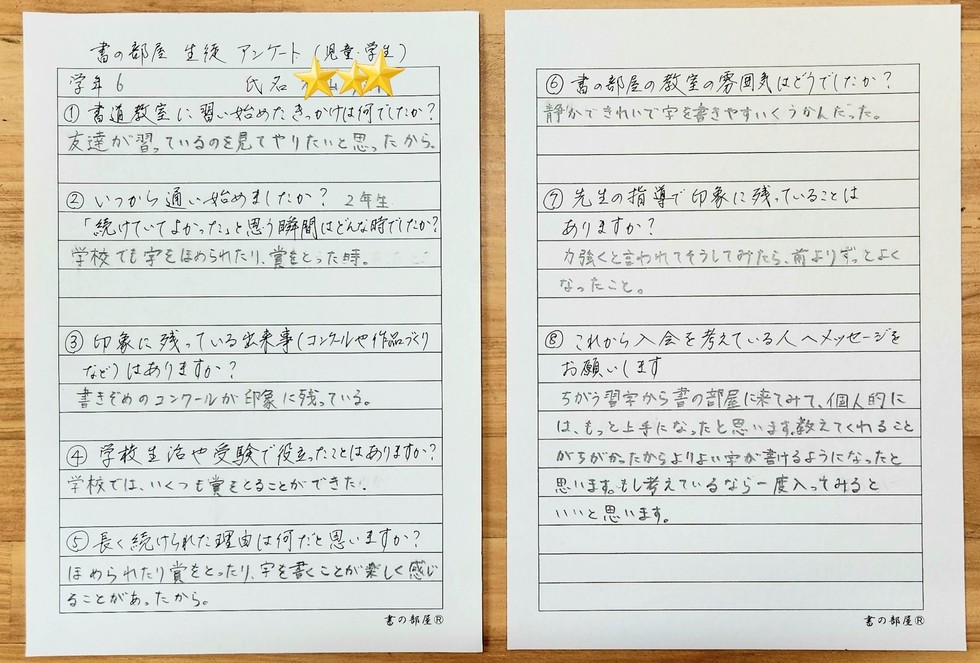 書の部屋 生徒 アンケート（児童・学生）
学年 6 氏名
① 書道教室に習い始めたきっかけは何でしたか？
友達が習っているのを見てやりたいと思ったから。
② いつから通い始めましたか？ 2年生
「続けていてよかった」と思う瞬間はどんな時でしたか？
学校でも字をほめられたり、賞をとった時。
③ 印象に残っている出来事（コンクールや作品づくり
など）はありますか？
書きぞめのコンクールが印象に残っている。
④ 学校生活や受験で役立ったことはありますか？
学校では、いくつも賞をとることができた。
⑤ 長く続けられた理由は何だと思いますか？
ほめられたり賞をとったり、字を書くことが楽しく感じ
ることがあったから。
書の部屋®
⑥ 書の部屋の教室の雰囲気はどうでしたか？
静かできれいで字を書きやすいくうかんだった。
⑦ 先生の指導で印象に残っていることは
ありますか？
力強くと言われてそうしてみたら、前よりずっとよく
なったこと。
⑧ これから入会を考えている人へメッセージを
お願いします
ちがう習字から書の部屋に来てみて、個人的に
は、もっと上手になったと思います。教えてくれること
がちがかったからよりよい字が書けるようになったと
思います。もし考えているなら一度入ってみると
いいと思います。
書の部屋®